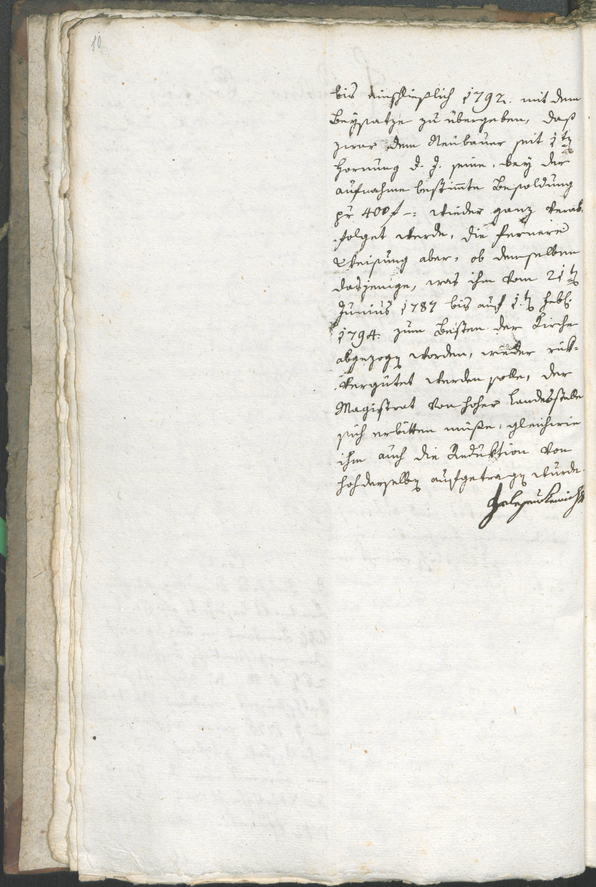 10
bis einschlüßlich 1792. mit dem
Beysatze zu übergeben, daß
zwar dem Neubauer seit 1ten
Hornung d. J. seine, bey der
aufnahme bestimte Besoldung
pr 400 f -: wieder ganz verab
folget werde, die fernere
Weisung aber, ob demselben
dasjenige, was ihm vom 21ten
Junius 1787 bis auf 1ten Febr
1794. zum Besten der Kirche
abgezogen worden, wieder rük-
vergütet werden solle, der
Magistrat von hoher Landesstelle
sich erbitten müße, gleichwie
ihm auch die Reduktion von
hochderselben aufgetragen wurde